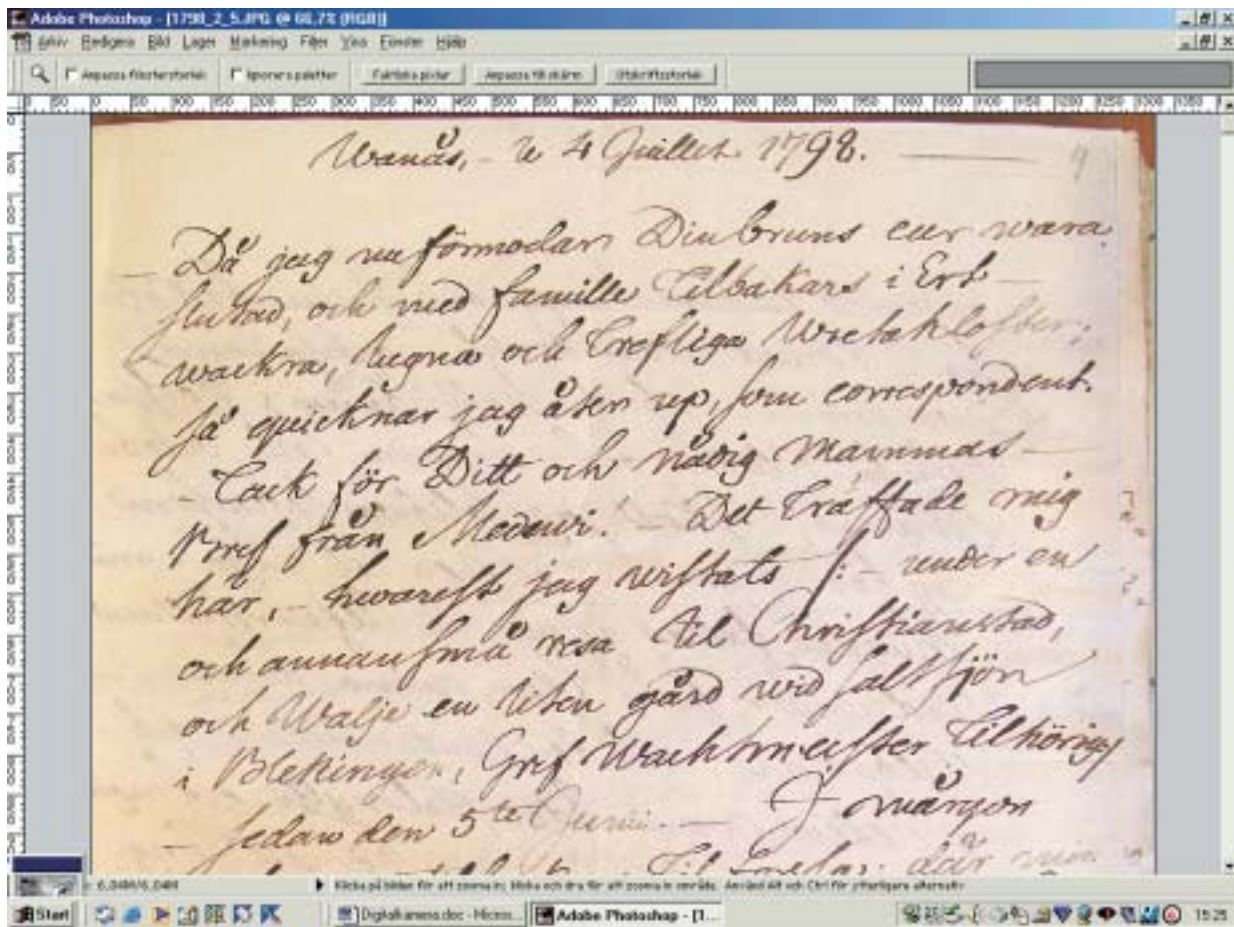 Adobe Photoshop - [1798_2_5.JPG @ 66,7% (RGB)]
Arkiv Redigera Bild Lager Markering Filter Visa Fönster Hjälp
Anpassa fönsterstorlek Ignorera paletter Faktiska pixlar Anpassa till skärm Utskriftsstorlek
Wanås, - le 4 Juillet 1798.
Då jag nu förmodar Din bruns cur wara
slutad, och med famille tilbakars i Ert
wackra, lugna och trefliga Wretakloster,
så quicknar jag åter up, som correspondent.
- Tack för Ditt och nådig Mammas
Bref från Medewi! - Det träffade mig
här, - hwarest jag wistats /: - under en
och annan små resa til Christianstad,
och Walje en liten gård wid saltsjön
i Blekingen, Gref Wachtmeister tilhörig /
- sedan den 5te Junii. - I mårgon
där min
6,04M/6,04M
Klicka på bilden för att zooma in; klicka och dra för att zooma in område. Använd Alt och Ctrl för ytterligare alternativ
Start Digitalkamera.doc - Micros... Adobe Photoshop - [1... 15:25